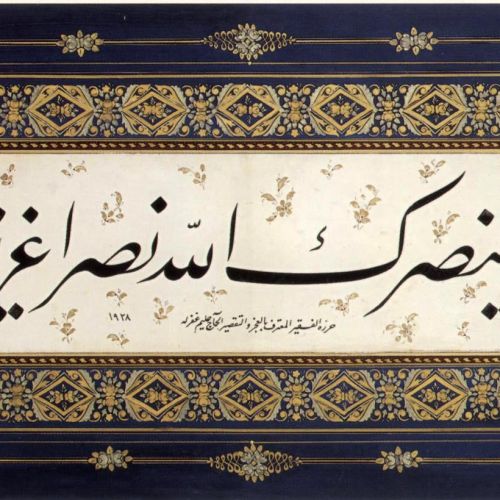 ينصرك الله نصرا عزيز
حرره الفقير المعترف بالعجز والتقصير الحاج حليم غفر له
١٩٢٨